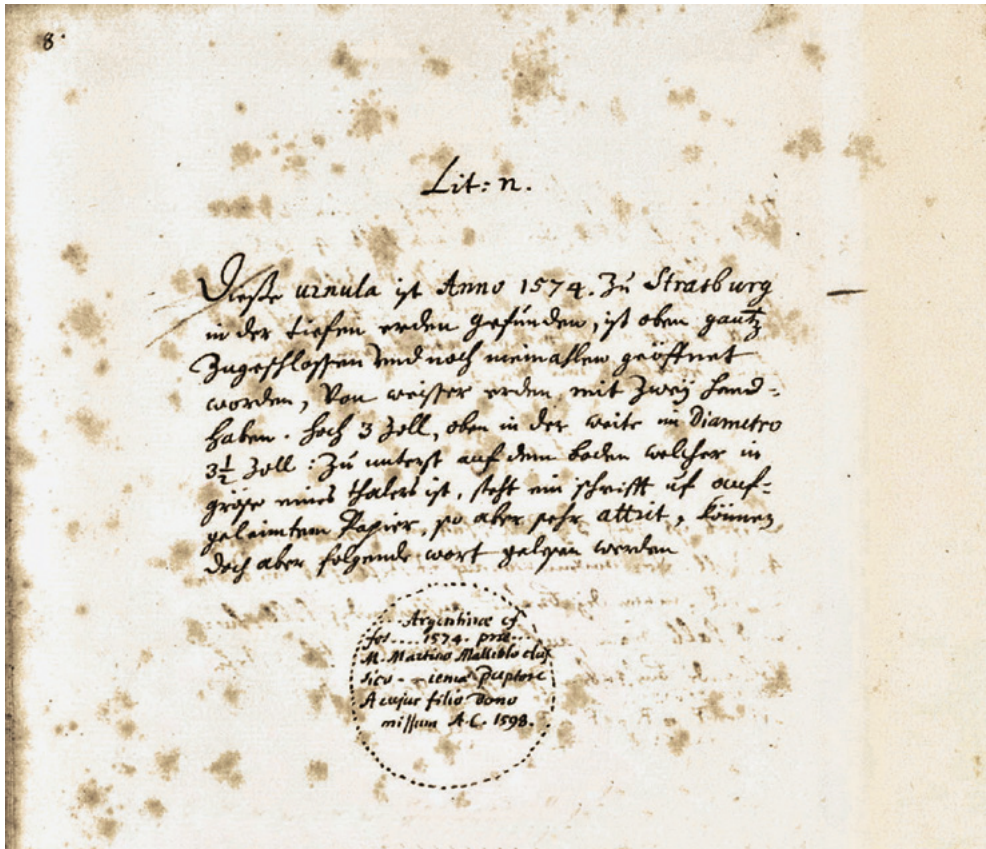 8.
Lit: n.
Dieße urnula ist Anno 1574. Zu Strasburg
in der tieffen erden gefunden, ist oben gantz
Zugeschlossen vnd noch niemahlen geöffnet
worden, Von weisser erden mit Zweÿ hand-
haben. hoch 3 Zoll, oben in der weite im Diametro
3 1/2 Zoll: Zu unterst auf dem boden welcher in
größe eines thalers ist, steht ein schrifft uf auf-
geleimtem Papier, so aber sehr attrit, können
doch aber folgende wort gelesen werden
.... Argentinæ ef
fos.... 1574. præ...
M. Martino Malleolo claf
sico - - iema Pceptore
A cujus filio dono
missum A.C. 1598.